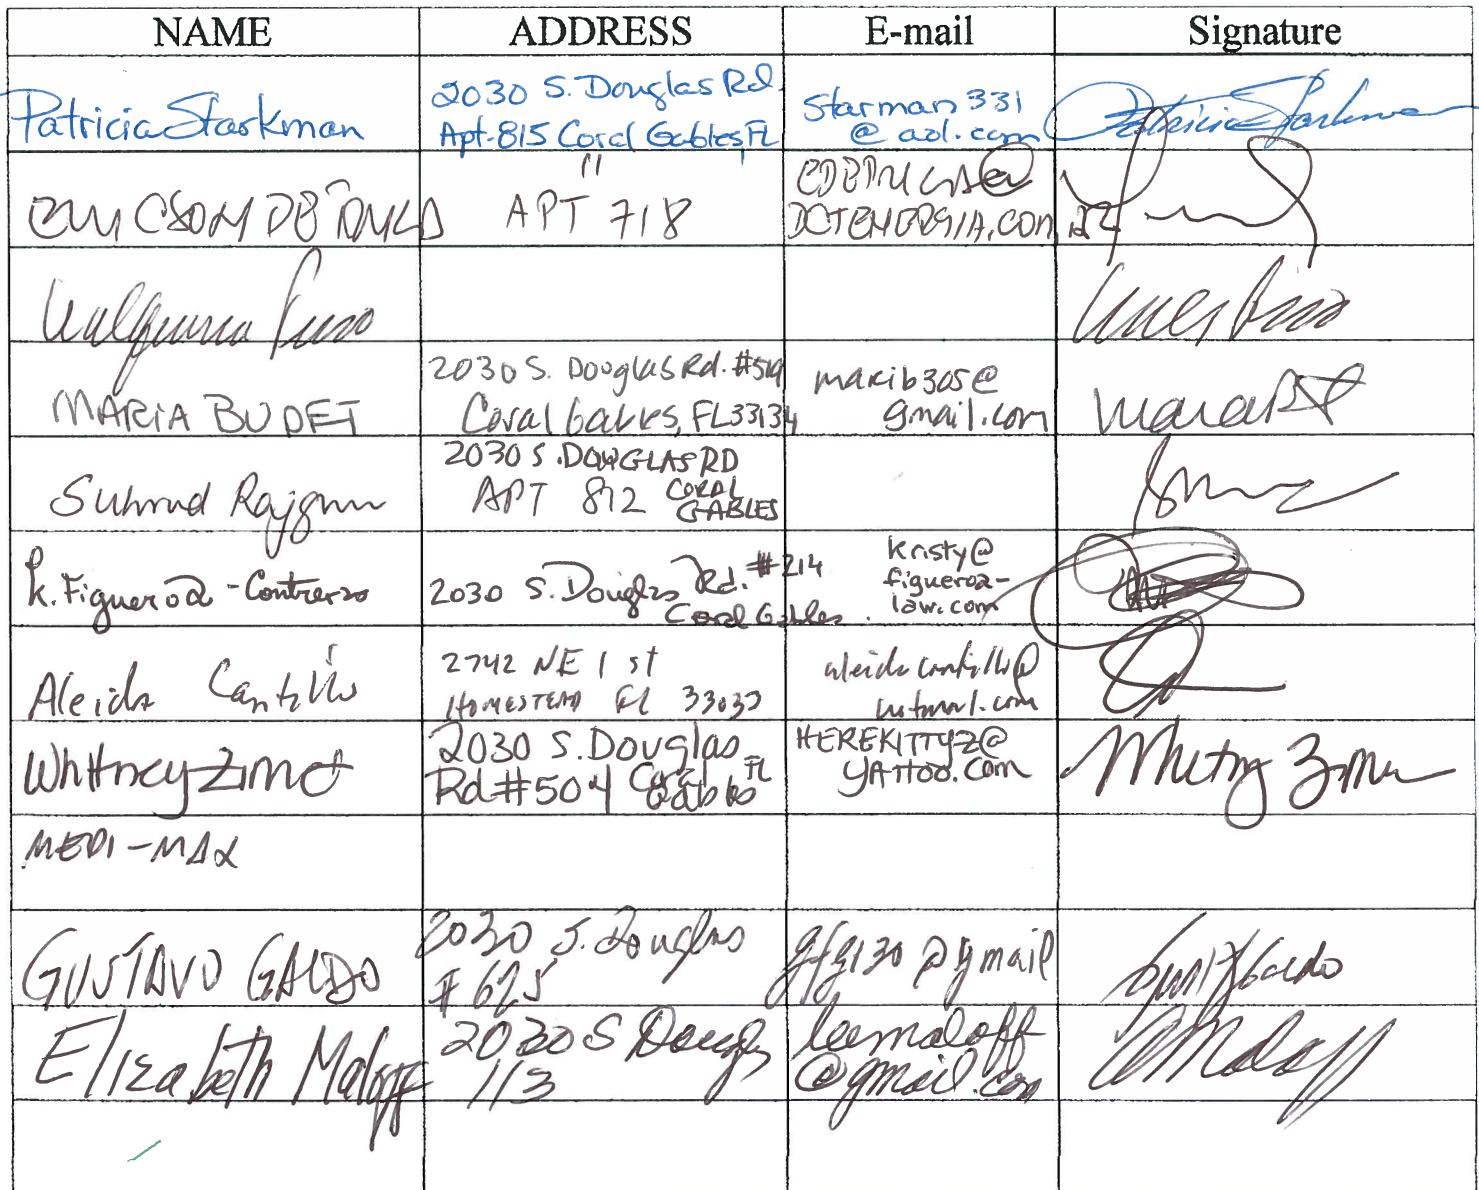 NAME ADDRESS E-mail Signature
Patricia Starkman
2030 S. Douglas Rd.
Apt-815 Coral Gables, FL
Starman331
@aol.com
Patricia Starkman
"
APT 718
MARIA BUDET
2030 S. Douglas Rd. #519
Coral Gables, FL 33134
marib305@
gmail.com
Suhrud
2030 S. DOUGLAS RD
APT 812 CORAL
GABLES
K. Figueroa-Contreras
2030 S. Douglas Rd. #214
Coral Gables.
Kristy@
figueroa-
law.com
Aleida Cantillo
2742 NE 1 st
HOMESTEAD FL 33033
aleidacantillo@
hotmail.com
Whitney
2030 S. Douglas
Rd #504 Coral Gables FL
HEREKITTYZ@
YAHOO.COM
Whitney
MEDI-MAX
GUSTAVO GALDO
2030 S. Douglas
#625
gfg130@gmail
Elizabeth Maloff
2030 S Douglas
113
leemaloff
@gmail.com